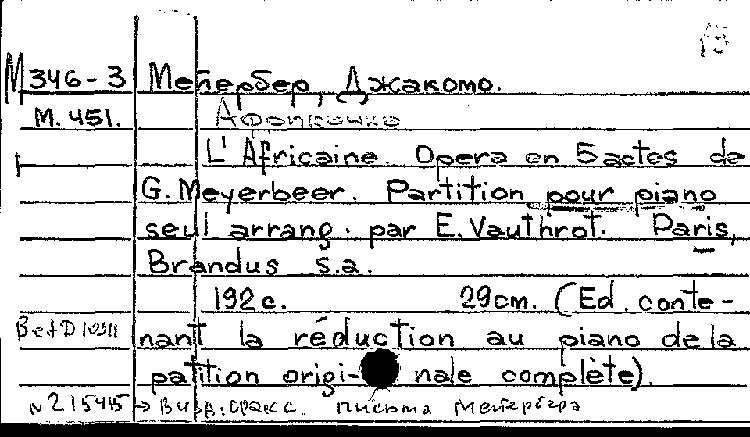 М346-3 Мейербер, Джакомо.
М. 451. Африканка
L'Africaine. Opera en 5 actes de
G. Meyerbeer. Partition pour piano
seul arrang. par E. Vauthrot. Paris,
Brandus s.a.
192 с. 29 см. (Ed. conte-
B et D nant la réduction au piano de la
patition origi- nale complète).
N 215415 → письма Мейербера